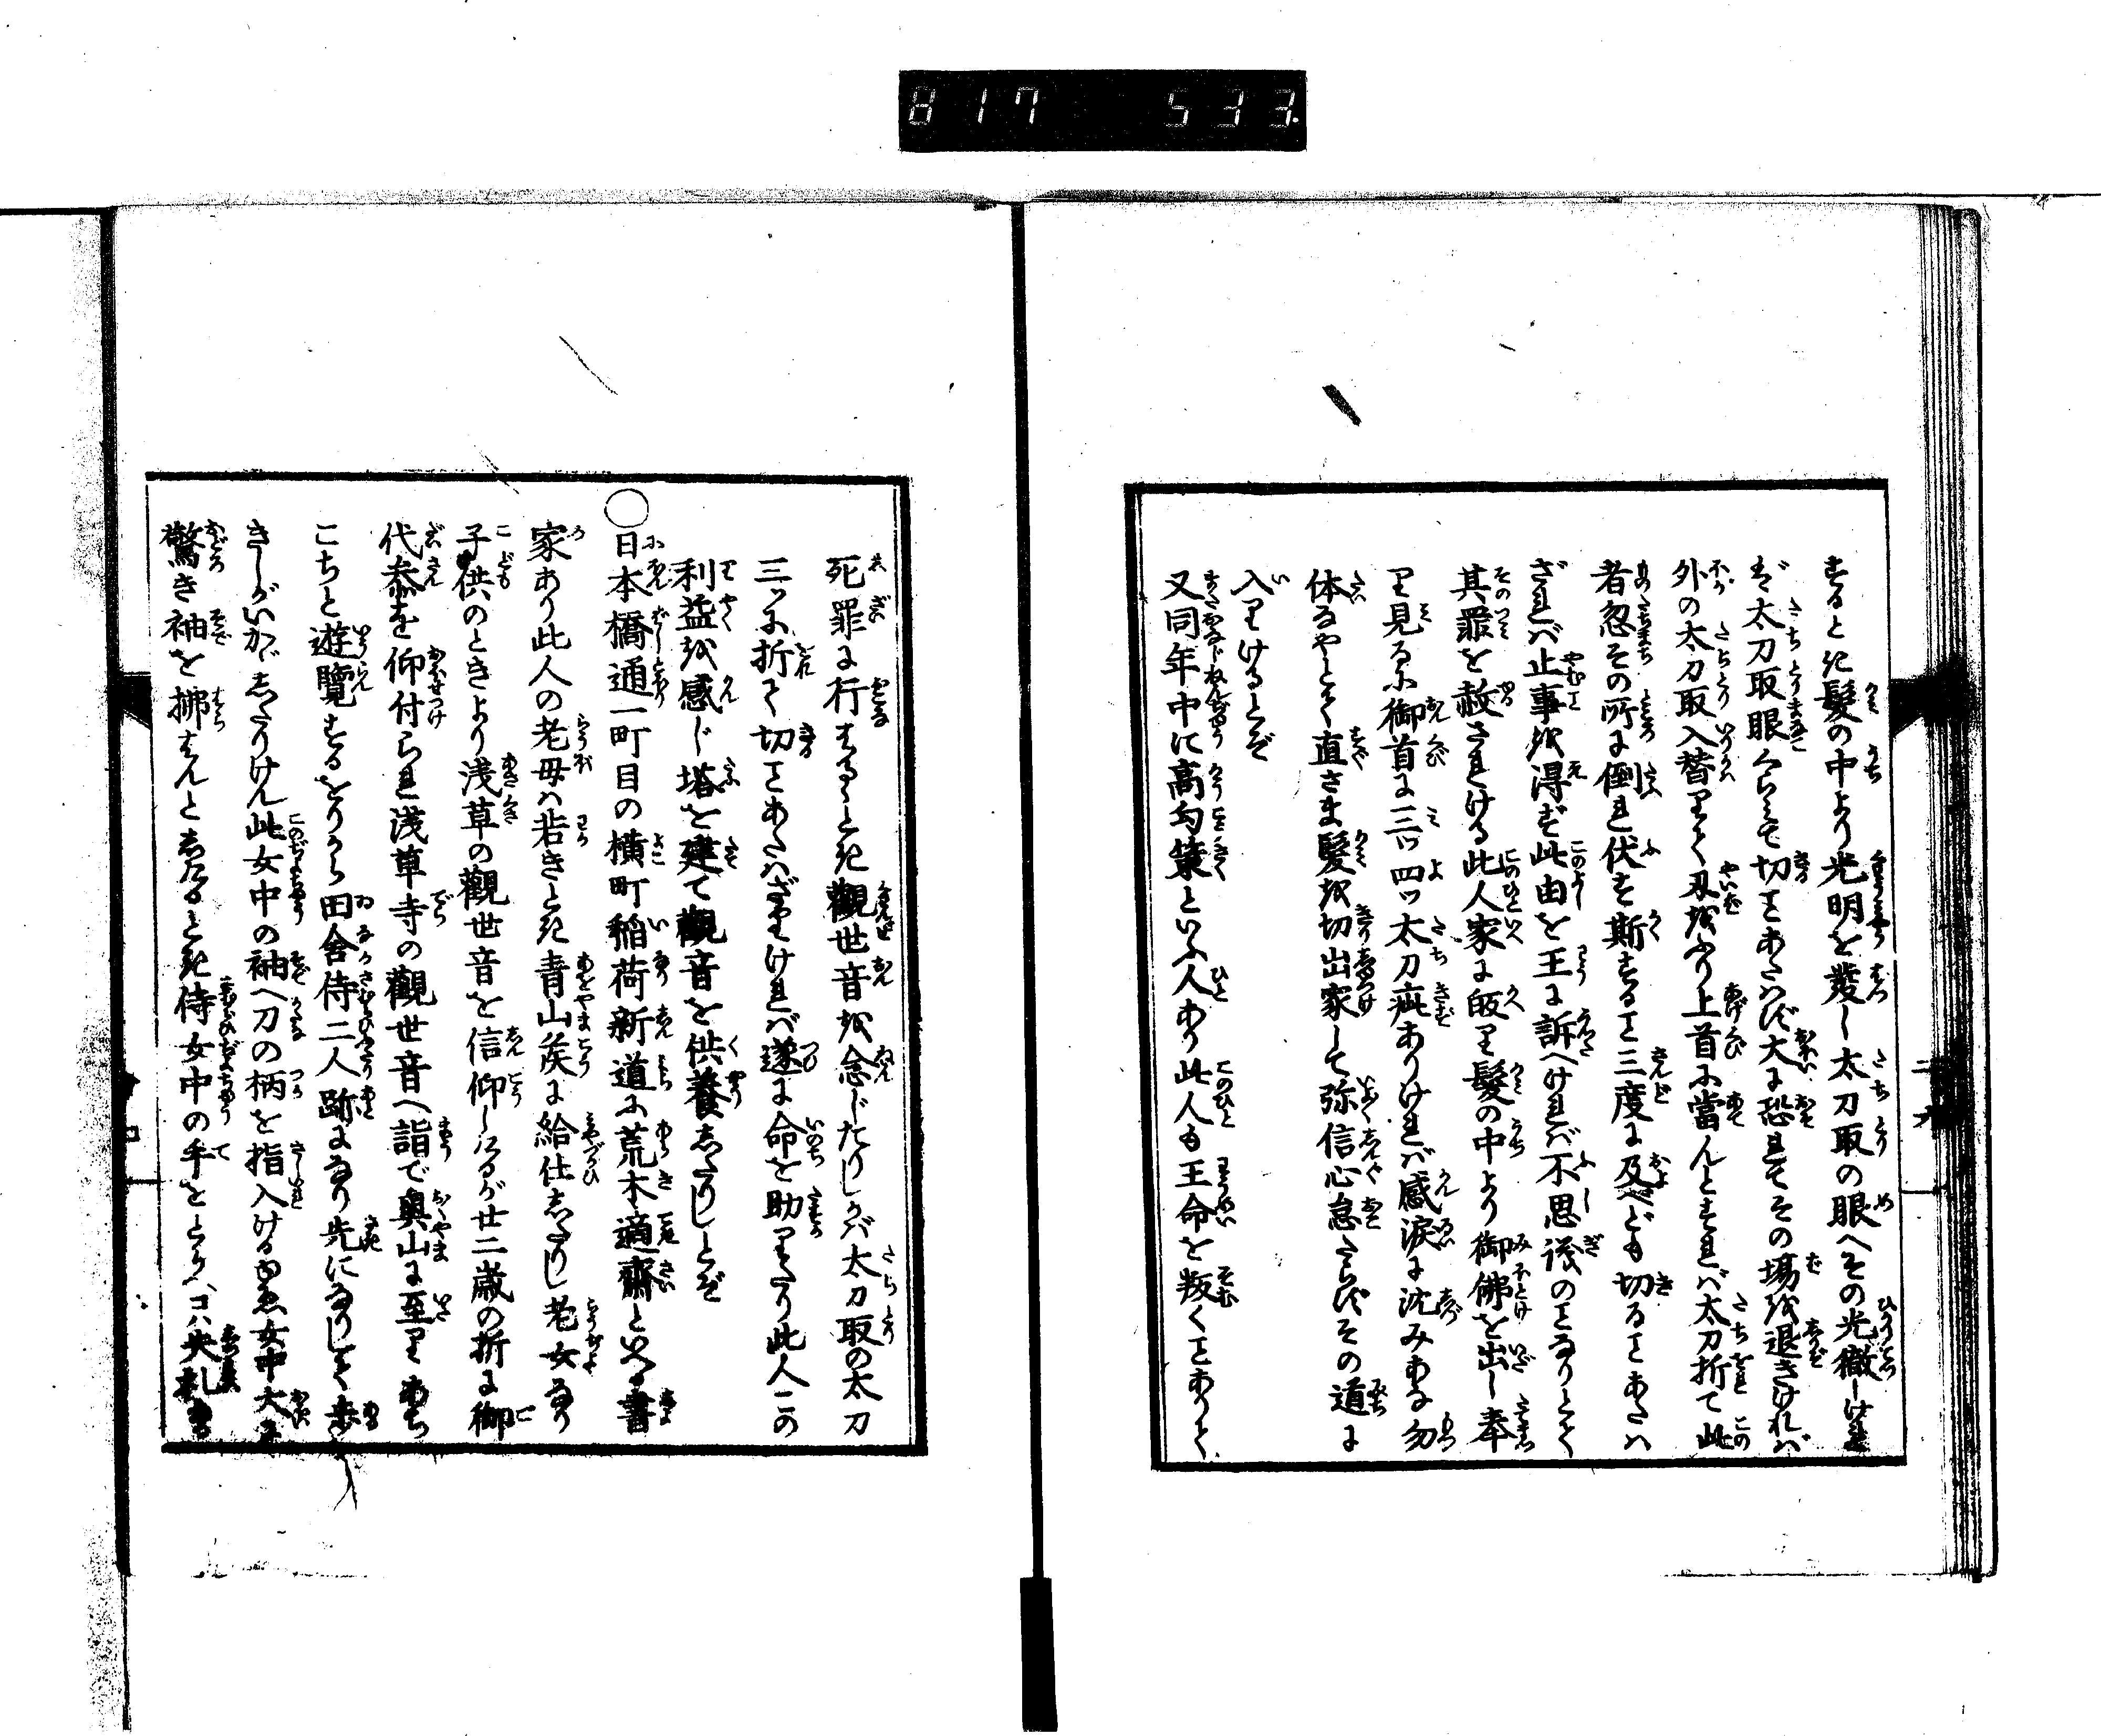 817 533.
するとき髮の中より光明を發し太刀取の眼へその光徹しけれ
ば太刀取眼くらみて切ことあたはず大に恐れてその場を退きければ
外の太刀取入替りて刄をふり上首に當んとすれば太刀折て此
者忽その所に倒れ伏す斯すること三度に及べども切ることあたは
ざれば止事を得ず此由を王に訴へければ不思議のことなりとて
其罪を赦されける此人家に皈り髮の中より御佛を出し奉
り見るに御首に三ッ四ッ太刀疵ありければ感涙に沈みあな勿
体なやとて直さま髮を切出家して弥信心怠たらずその道に
入りけるとぞ
又同年中に高匀策といふ人あり此人も王命を叛くことありて
二ノ九
死罪に行はるるとき觀世音を念じたりしかば太刀取の太刀
三ッに折て切ことあたはざりければ遂に命を助りたり此人この
利益を感じ塔を建て觀音を供養したりしとぞ
○日本橋通一町目の横町稲荷新道に荒木適齋といへる書
家あり此人の老母は若きとき青山矦に給仕したりし老女なり
子供のときより浅草の觀世音を信仰しけるが廿二歳の折に御
代参を仰付られ浅草寺の觀世音へ詣で奥山に至りあち
こちと遊覽するをりから田舍侍二人跡になり先になりして歩
きしがいかゞしたりけん此女中の袖へ刀の柄を指入けるゆゑ女中大に
驚き袖を拂はんとしたるとき侍女中の手をとりコハ失礼な